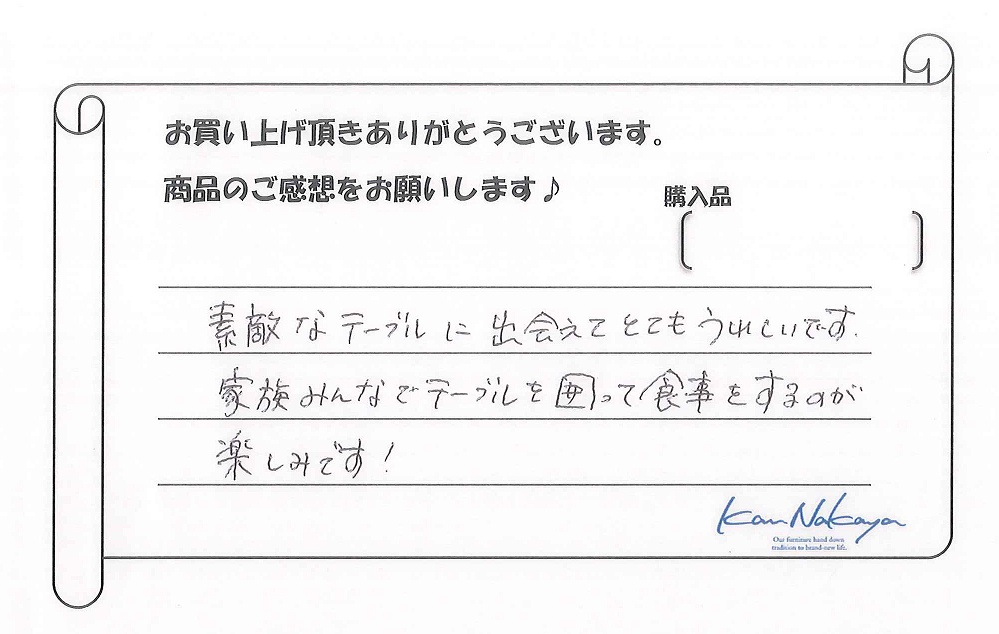 お買い上げ頂きありがとうございます。
商品のご感想をお願いします♪
購入品
素敵なテーブルに出会えてとてもうれしいです.
家族みんなでテーブルを囲って食事をするのが
楽しみです!
Kan Nakaya
Our furniture hand down
tradition to brand-new life.